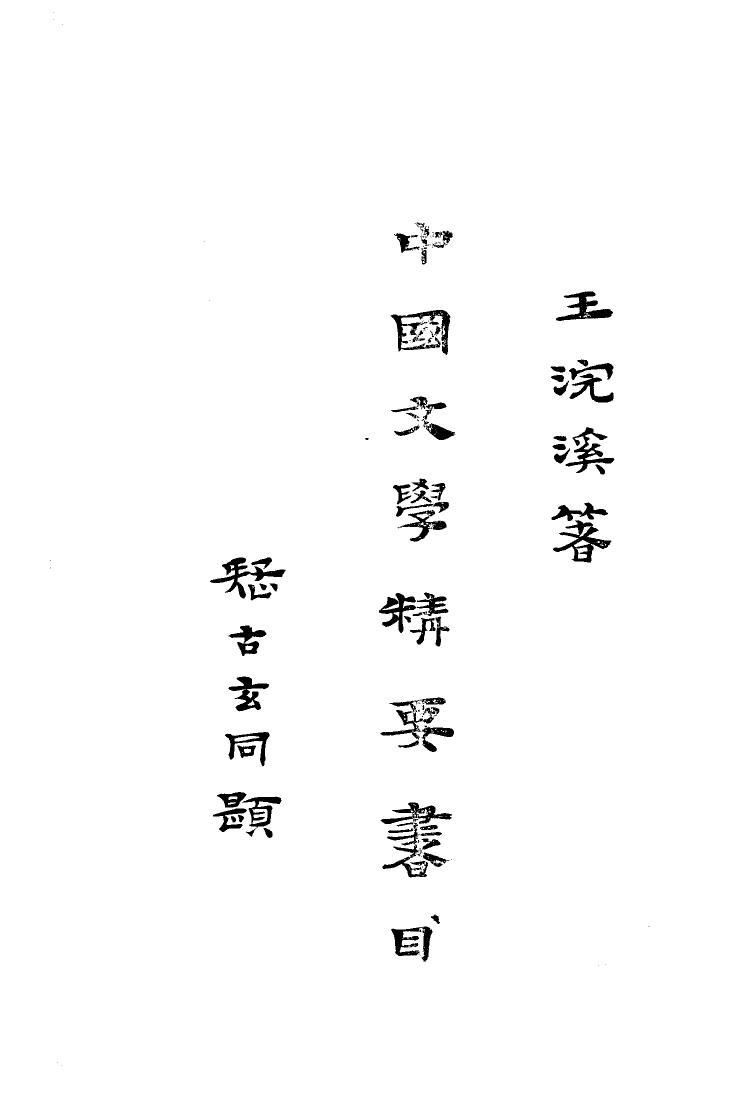 王浣溪箸
中國文學精要書目
疑古玄同題